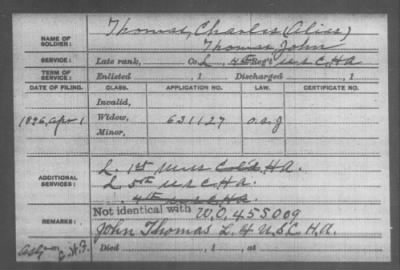 NAME OF SOLDIER: Thomas, Charles (Alias)
Thomas John
SERVICE: Late rank, Co. L, 4th Reg't U.S.C.H.A
TERM OF SERVICE: Enlisted , 1 Discharged , 1
DATE OF FILING. CLASS. APPLICATION NO. LAW. CERTIFICATE NO.
Invalid,
1896, Apr 1 Widow, 631127 O.S.J
Minor,
ADDITIONAL SERVICES: L. 1st Miss Col'd H.A.
L 5th U.S.C.H.A.
4th U.S.C.H.A.
REMARKS: Not identical with W.O. 455009
John Thomas L. 4 U.S.C.H.A.
Died , 1 , at